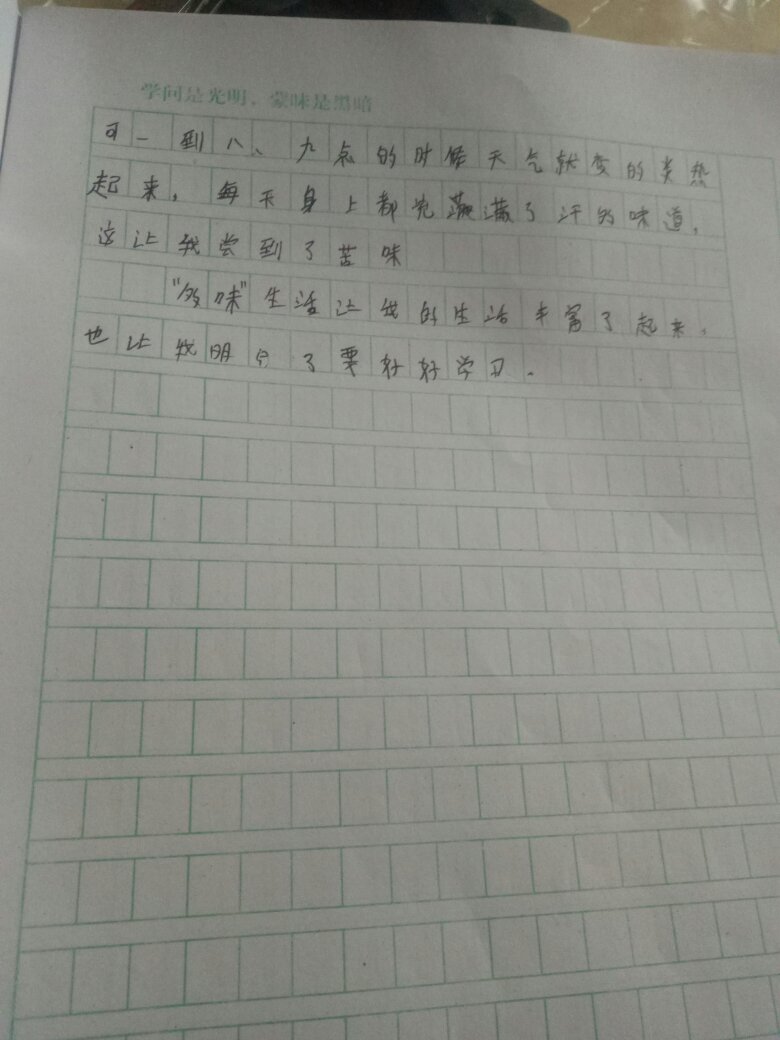 学问是光明，蒙昧是黑暗
可一到八、九点的时候天气就变的炎热
起来，每天身上都充满满了汗的味道，
这让我尝到了苦味
"多味"生活让我的生活丰富了起来，
也让我明白了要好好学习。